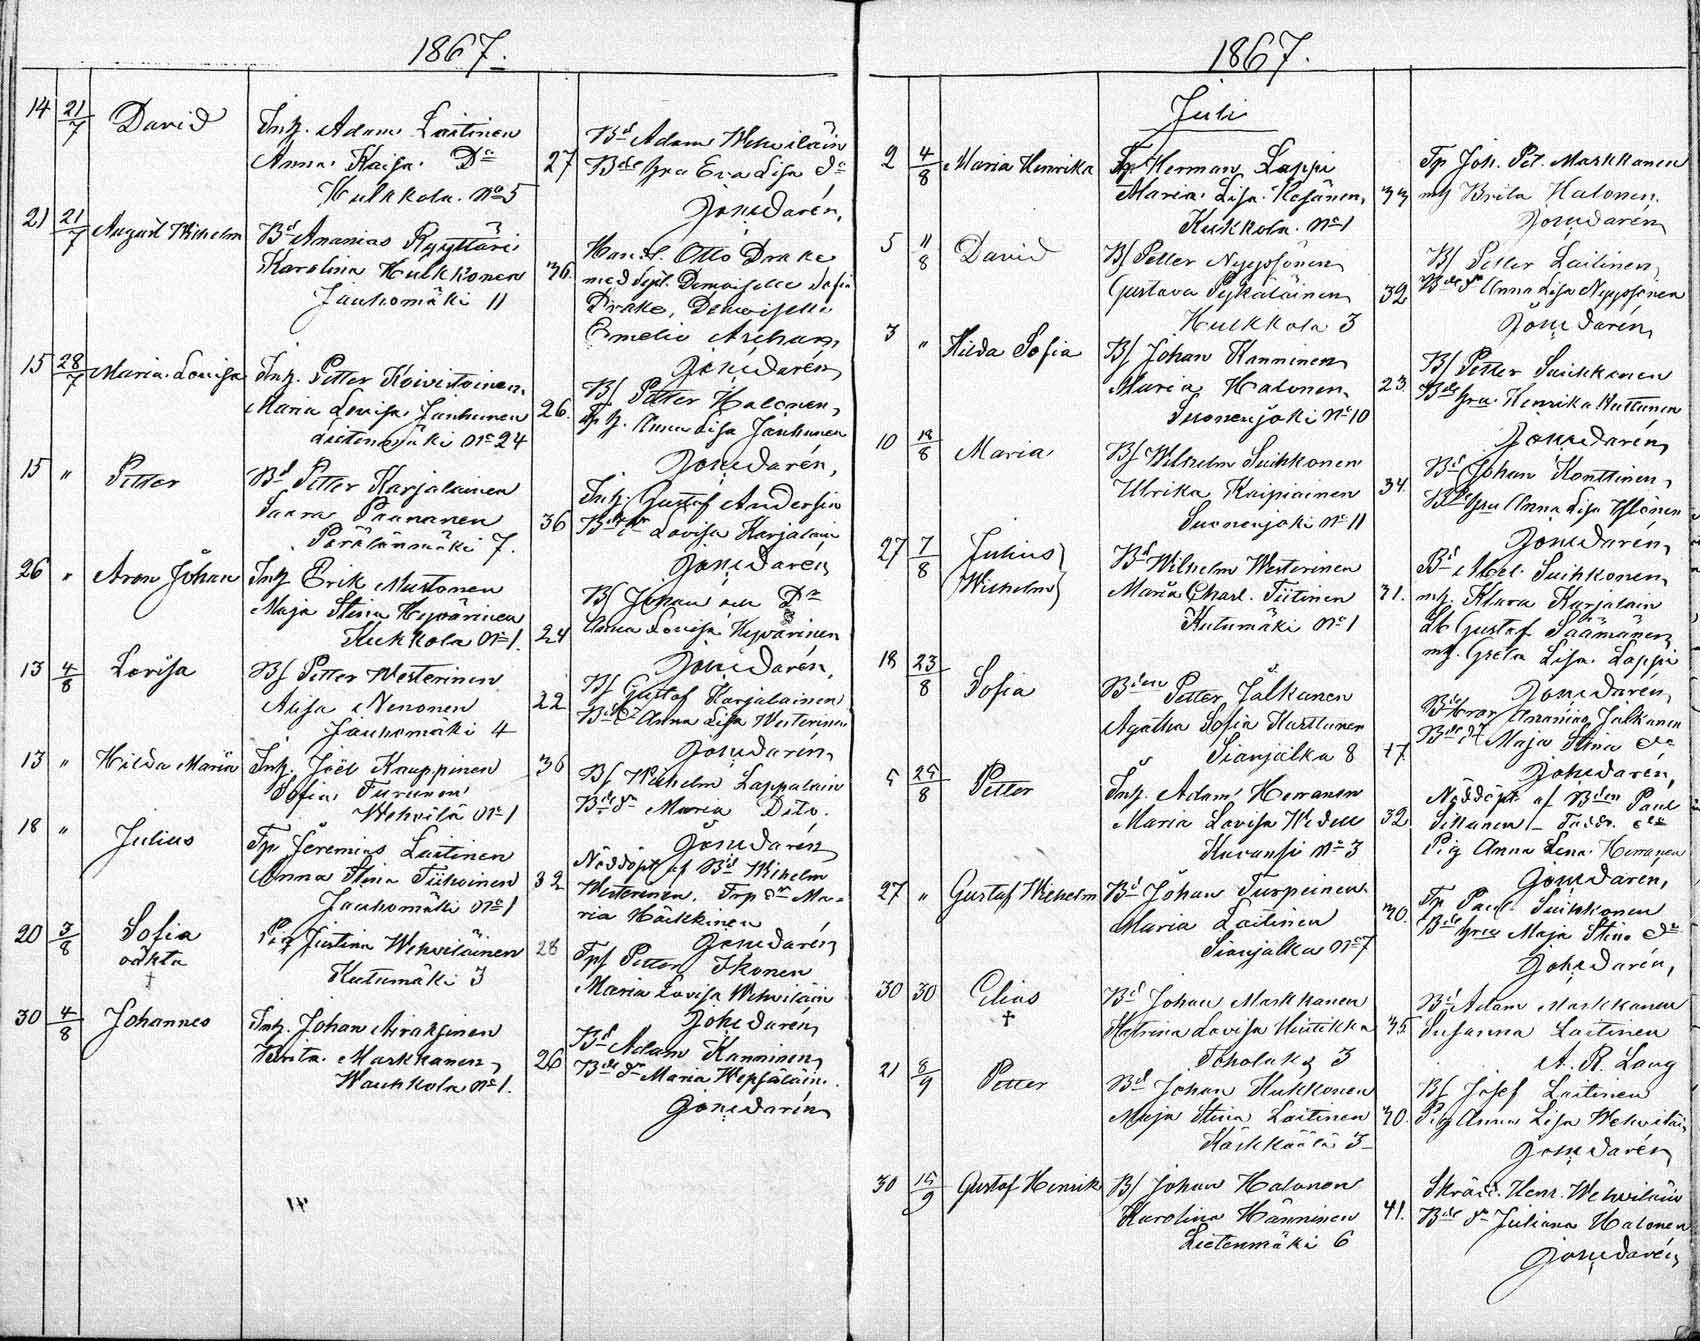 1867.
14 21/7 David Inh. Adam Laitinen
Anna Kaisa Do 27
Hulkkola No 5
Bd Adam Wehviläin
Bde hru Eva Lisa do
Jon. Darén
21 21/7 August Wilhelm Bd Ananias Ryyttäri
Karolina Hulkkonen 36.
Jauhomäki 11
Handl. Otto Drake
med Demoiselle Sofia
Drake, Demoiselle
Emelie
Jon. Darén
15 28/7 Maria Lovisa Inh. Petter Koivistoinen
Maria Lovisa Janhunen 26.
Lietenmäki No 24
B/ Petter Halonen
Anna Lisa Janhunen
Jon. Darén
15 " Petter Bd Petter Karjalainen
Saara Paananen 36
7.
Inh. Gustaf Andersin
Lovisa Karjalain
Jon. Darén
26 " Aron Johan Inh Erik Mustonen
Maja Stina Hyvärinen
Kukkola No 1. 24
B/ Johan Do
Anna Lovisa Hyvärinen
Jon. Darén
13 4/8 Lovisa B/ Petter Westerinen
Nenonen 22
Jauhomäki 4
B/ Gustaf Karjalainen
Anna Lisa Westerinen
Jon. Darén
13 " Hilda Maria Inh. Joël Kauppinen 36
Sofia Turunen
Wehvilä No 1
B/ Wilhelm Lappalain
Bde dr Maria Dito.
Jon. Darén
18 " Julius Tp Jeremias Laitinen
Anna Stina Tiihoinen 32
Jauhomäki No 1
Nöddöpt af Bd Wilhelm
Westerinen. Trp dr Ma-
ria Häkkinen
Jon. Darén
20 3/8 Sofia
oäkta
†
Pig Justina Wehviläinen 28
Kutumäki 3
Petter Ikonen
Maria Lovisa Wehviläin
Jon. Darén
30 4/8 Johannes Inh. Johan Airaksinen
Brita Markkanen 26
Wauhkola No 1.
Bd Adam Kanninen
Bde dr Maria Wepsäläin.
Jon. Darén
1867.
Juli
2 4/8 Maria Henrika Tp Herman Lappi
Maria Lisa Kesänen 33
Kukkola No 1
Tp Joh. Pet. Markkanen
mh Brita Halonen
Jon. Darén
5 11/8 David B/ Petter Nyyssönen
Gustava Pykäläinen 32
Hulkkola 3
B/ Petter Laitinen
Bde dr Anna Lisa Nyyssönen
Jon. Darén
3 " Hilda Sofia B/ Johan Kanninen
Maria Halonen 23.
Suonenjoki No 10
B/ Petter Suihkonen
Bde hru Henrika Huttunen
Jon. Darén
10 18/8 Maria B/ Wilhelm Suihkonen
Ulrika Kaipiainen 34.
Suonenjoki No 11
Bd Johan Konttinen
Bde hru Anna Lisa Ylönen
Jon. Darén
27 7/8 Julius
Wilhelm
Bd Wilhelm Westerinen
Maria Charl. Tiitinen 31.
Kutumäki No 1
Bd Abel Suihkonen
mh. Klara Karjalain
Gustaf Säämänen
mh. Greta Lisa Lappi
Jon. Darén
18 23/8 Sofia Bden Petter Jalkanen
Agatha Sofia Karttunen
Sianjalka 8 17.
Ananias Jalkanen
Bde dr Maja Stina do
Jon. Darén
5 25/8 Petter Inh. Adam Herranen
Maria Lovisa Wedell 32
Kuransi No 3
Nöddöpt af Bden Paul
Pig Anna Lena Herranen
Jon. Darén
27 " Gustaf Wilhelm Bd Johan Turpeinen
Maria Laitinen 30.
Sianjalka No 7
Tp Paul Suihkonen
Bde hru Maja Stina do
Jon. Darén
30 30 Elias
†
Bd Johan Markkanen
Katrina Lovisa Hintikka 35.
3
Bd Adam Markkanen
Susanna Laitinen
A. R. Laug
21 8/9 Petter Bd Johan Hukkonen
Maja Stina Laitinen 30.
Kärkkäälä 3
B/ Josef Laitinen
Pig Anna Lisa Wehviläi
Jon. Darén
30 15/9 Gustaf Henrik B/ Johan Halonen
Karolina Hänninen 41.
Lietenmäki 6
Skräd. Henr. Wehviläin
Bde dr Juliana Halonen
Jon. Darén